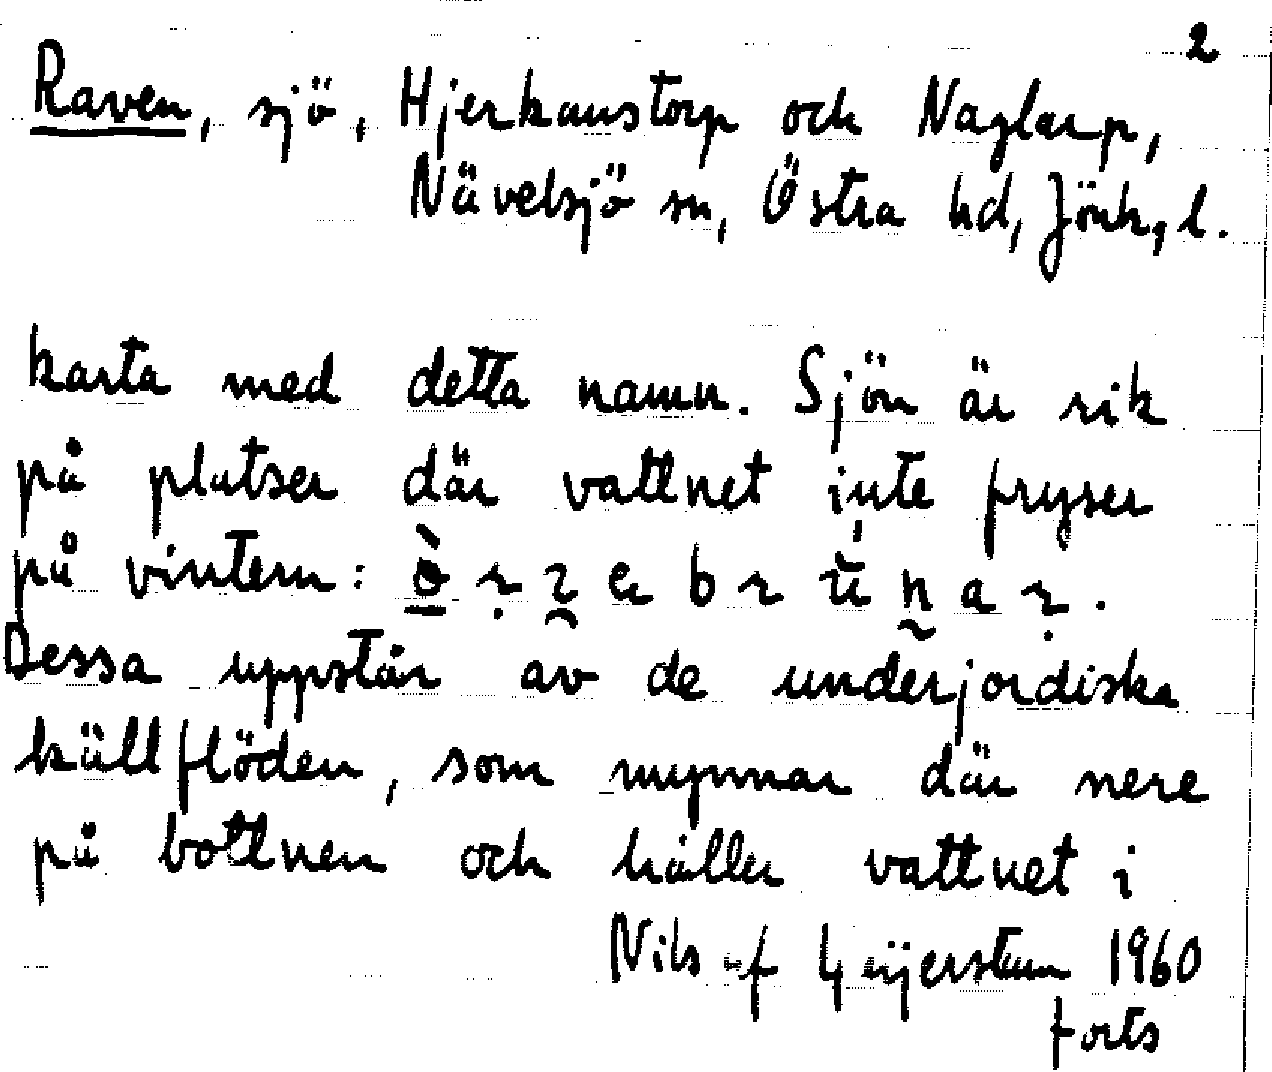 2
Raven, sjö, Hjerkanstorp och Naglarp,
Nävelsjö sn, Östra hd, Jönk, l.
karta med detta namn. Sjön är rik
på platser där vattnet inte fryser
på vintern:
Dessa uppstår av de underjordiska
källflöden, som mynnar där nere
på bottnen och håller vattnet i
Nils af Geijerstam 1960
forts